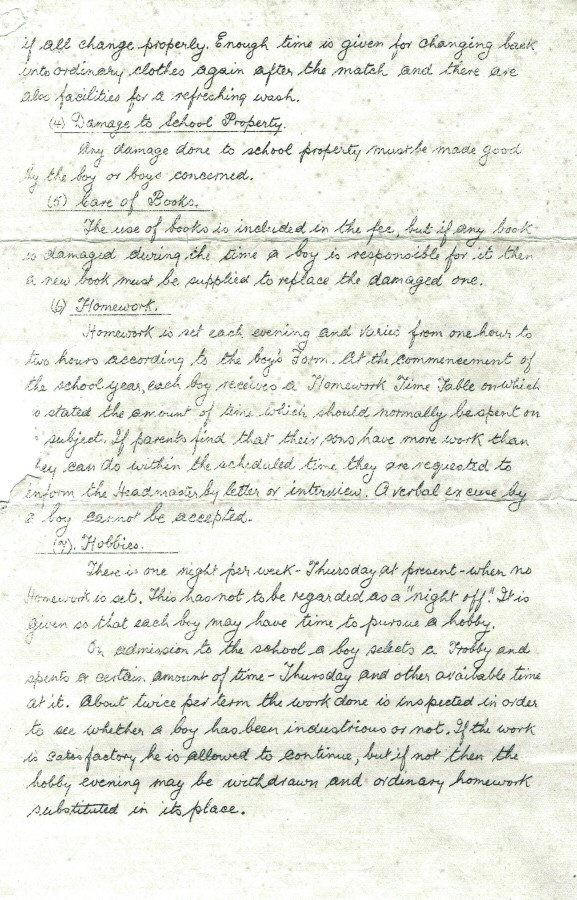 if all change properly. Enough time is given for changing back
into ordinary clothes again after the match and there are
also facilities for a refreshing wash.
(4) Damage to School Property.
Any damage done to school property must be made good
by the boy or boys concerned.
(5) Care of Books.
The use of books is included in the fee, but if any book
is damaged during the time a boy is responsible for it then
a new book must be supplied to replace the damaged one.
(6) Homework.
Homework is set each evening and varies from one hour to
two hours according to the boy's Form. At the commencement of
the school year, each boy receives a Homework Time Table on which
is stated the amount of time which should normally be spent on
a subject. If parents find that their sons have more work than
they can do within the scheduled time they are requested to
inform the Headmaster by letter or interview. A verbal excuse by
a boy cannot be accepted.
(7). Hobbies.
There is one night per week - Thursday at present - when no
Homework is set. This has not to be regarded as a "night off". It is
given so that each boy may have time to pursue a hobby.
On admission to the school a boy selects a Hobby and
spends a certain amount of time - Thursday and other available time
at it. About twice per term the work done is inspected in order
to see whether a boy has been industrious or not. If the work
is satisfactory he is allowed to continue, but if not then the
hobby evening may be withdrawn and ordinary homework
substituted in its place.